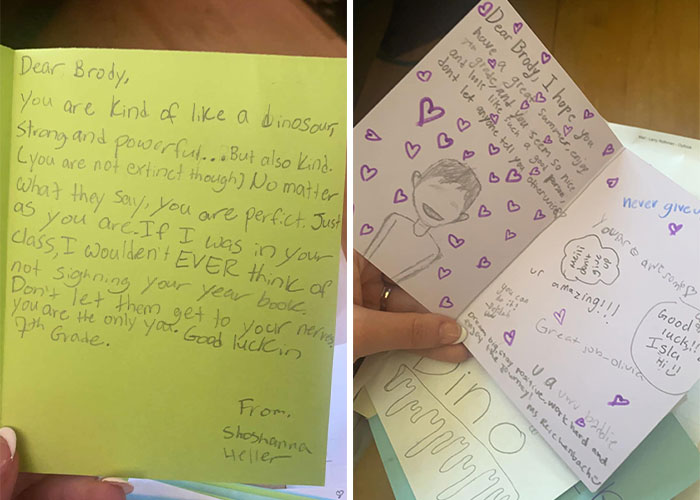 Dear Brody,
You are kind of like a dinosour,
strong and powerful... But also kind.
(you are not extinct though) No matter
what they say, you are perfict. Just
as you are. If I was in your
class, I woulden't EVER think of
not sighning your year book.
Don't let them get to your nerves,
you are the only you. Good luck in
7th Grade.
From,
Shoshanna
Heller
Dear Brody, I hope you
have a great summer, enjoy
grade, and you seem so nice
and look like such a good person,
dont let anyone tell you otherwise
never give u
you are awesome
don't
give
up
ur
amazing!!!
you can
do it
Good
luck!!
Isla
Hi!!
Great job-olivia
Dream big, stay positive, work hard and
enjoy the journey!
Ms Reichenbacher
Dino